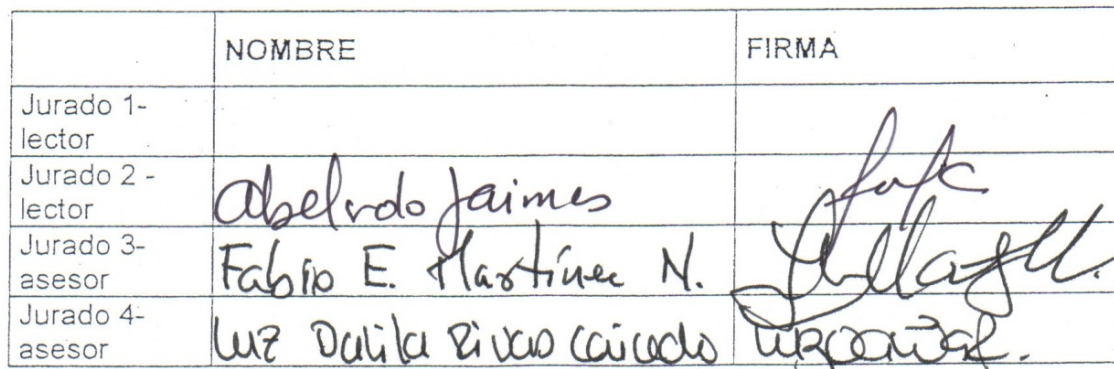 NOMBRE FIRMA
Jurado 1-
lector
Jurado 2 -
lector Abelrdo Jaimes
Jurado 3-
asesor Fabio E. Martínez N.
Jurado 4-
asesor Luz Dalila Rivas Caicedo